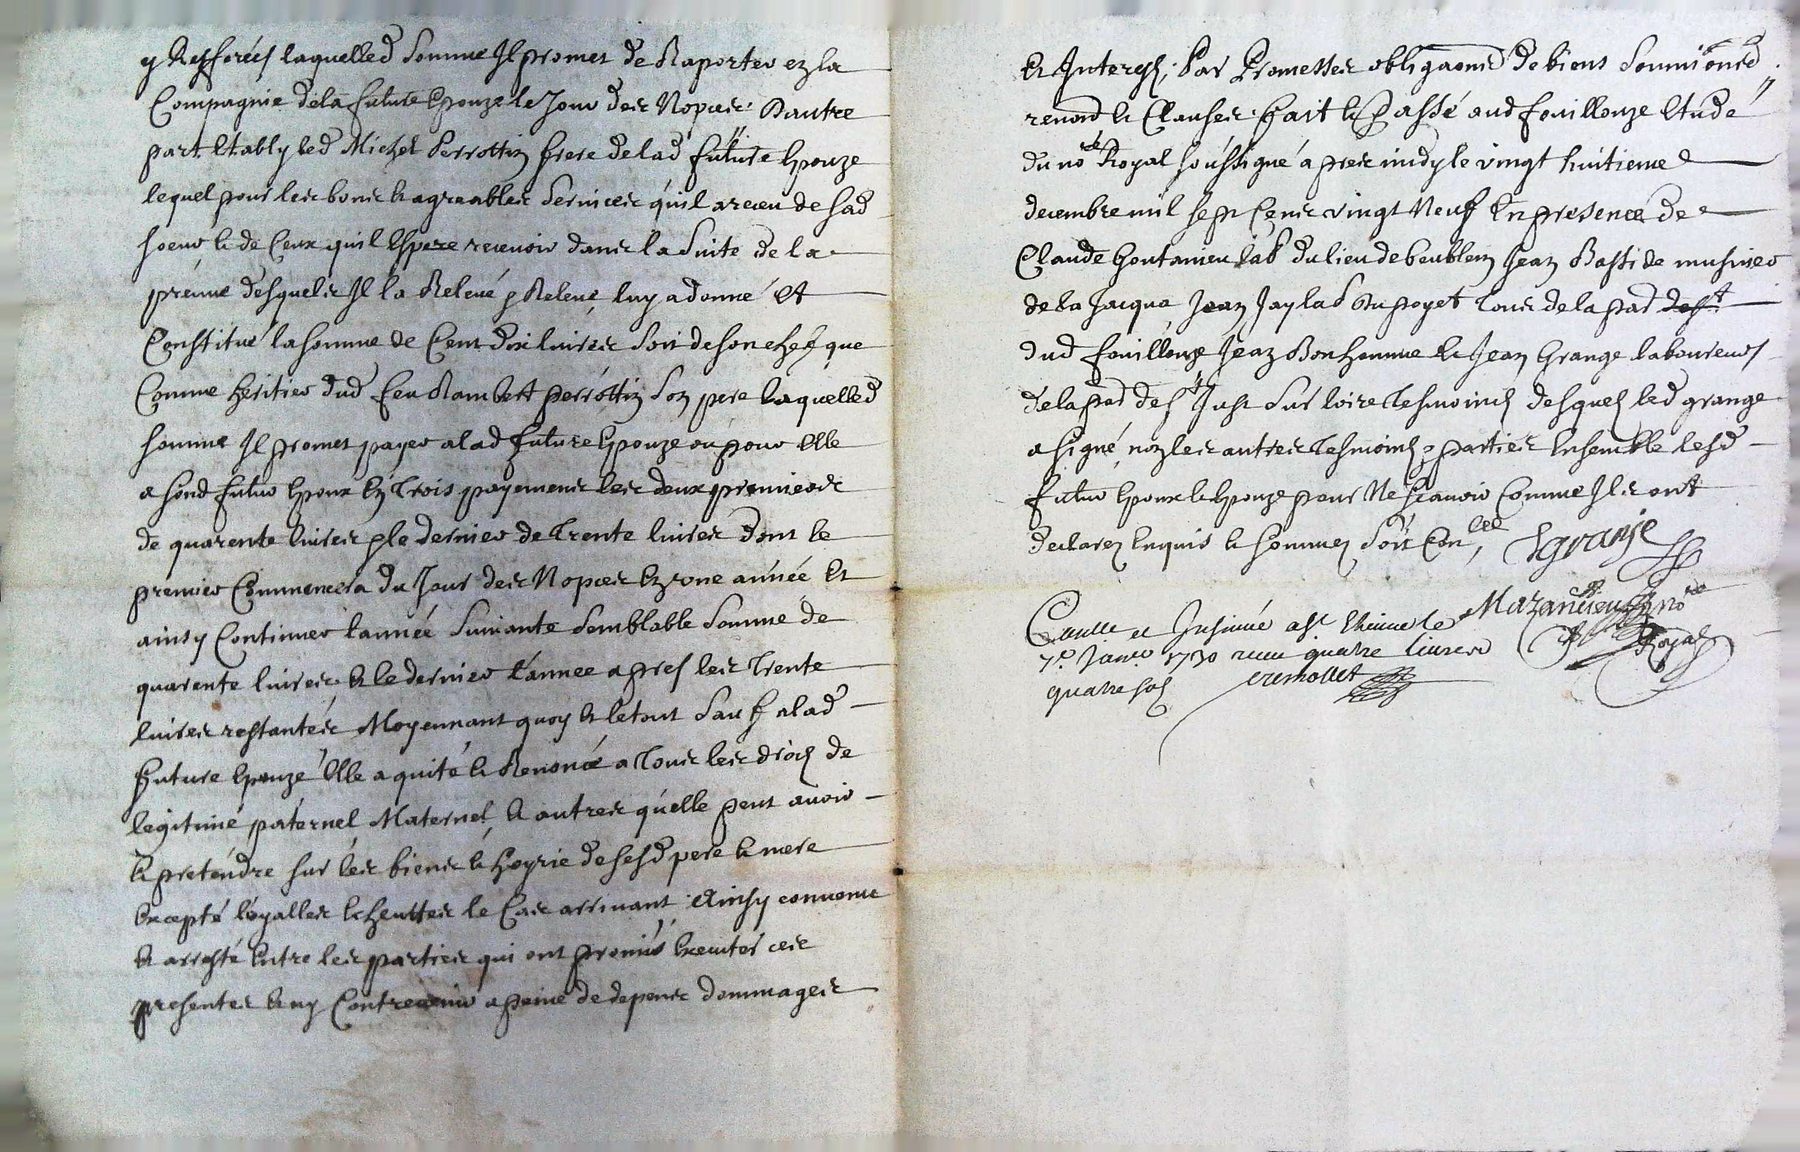 y Referées laquelled somme Il promet de Raporter en la
Compagnie de la future Epouze le Jour des Nopces. D'autre
part Etably led Michel Perrottin frere de lad future Epouze
lequel pour les bons & agreables services qu'il a receu de sad
soeur & de Ceux qu'il Espere recevoir dans la suite de la
preuve desquels Il la Relevé & Releve luy a donné Et
Constitué la somme de Cent dix livres soit de son chef que
Comme heritier dud feu Rambert perrottin son pere laquelled
somme Il promet payer a lad future Epouze ou pour Elle
a sond futur Epoux En Trois payements les deux premiers
de quarente livres & le dernier de Trente livres dont le
premier Commencera du Jour des Nopces En une année Et
ainsy Continuer l'année suivante semblable somme de
quarente livres & le dernier l'année apres les Trente
livres restantes Moyennant quoy & le tout sauf a lad
future Epouze Elle a quité & Renoncé a Tous les droits de
legitime paternel Maternel & autres qu'elle peut avoir
& pretendre sur les biens & hoyrie de sesd pere & mere
Excepté loyalles Echeuttes le Cas arrivant. Ainsy convenu
& arresté Entre les parties qui ont promis Executer ces
presentes & ny Contrevenir a peine de depens dommages
& Interests, Par Promesses obligaons de biens soumions
renons & Clauses. fait & Passé aud fouillouze Etude
du nore Royal soussigné apres midy le vingt huitieme
decembre mil sept Cens vingt Neuf En presence de
Claude Goutanieu lab du lieu de Jean Bassi de musnier
de la Jacqua Jean Jay lab du poyet Tous de la pad
dud fouillouze Jean Bonhomme & Jean Grange laboureurs
de la pad de st Just sur loire Tesmoins desquels led grange
a signé, non les autres Tesmoins & parties Ensemble lesd
futur Epoux & Epouze pour Ne scavoir Comme Ils ont
declarez Enquis & sommez soit Con lée Jgranje
Mazancieu nore
Royal
Contlle et Insinué a st Etienne le
7e Janer 1730 receu quatre livres
quatre sols cremollet